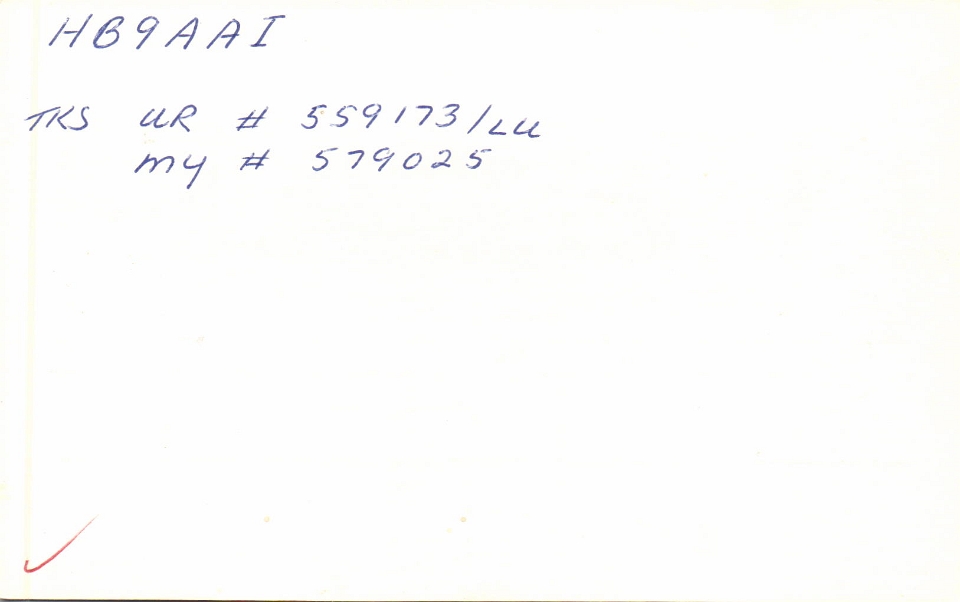 HB9AAI
TKS UR # 559173/LU
my # 579025